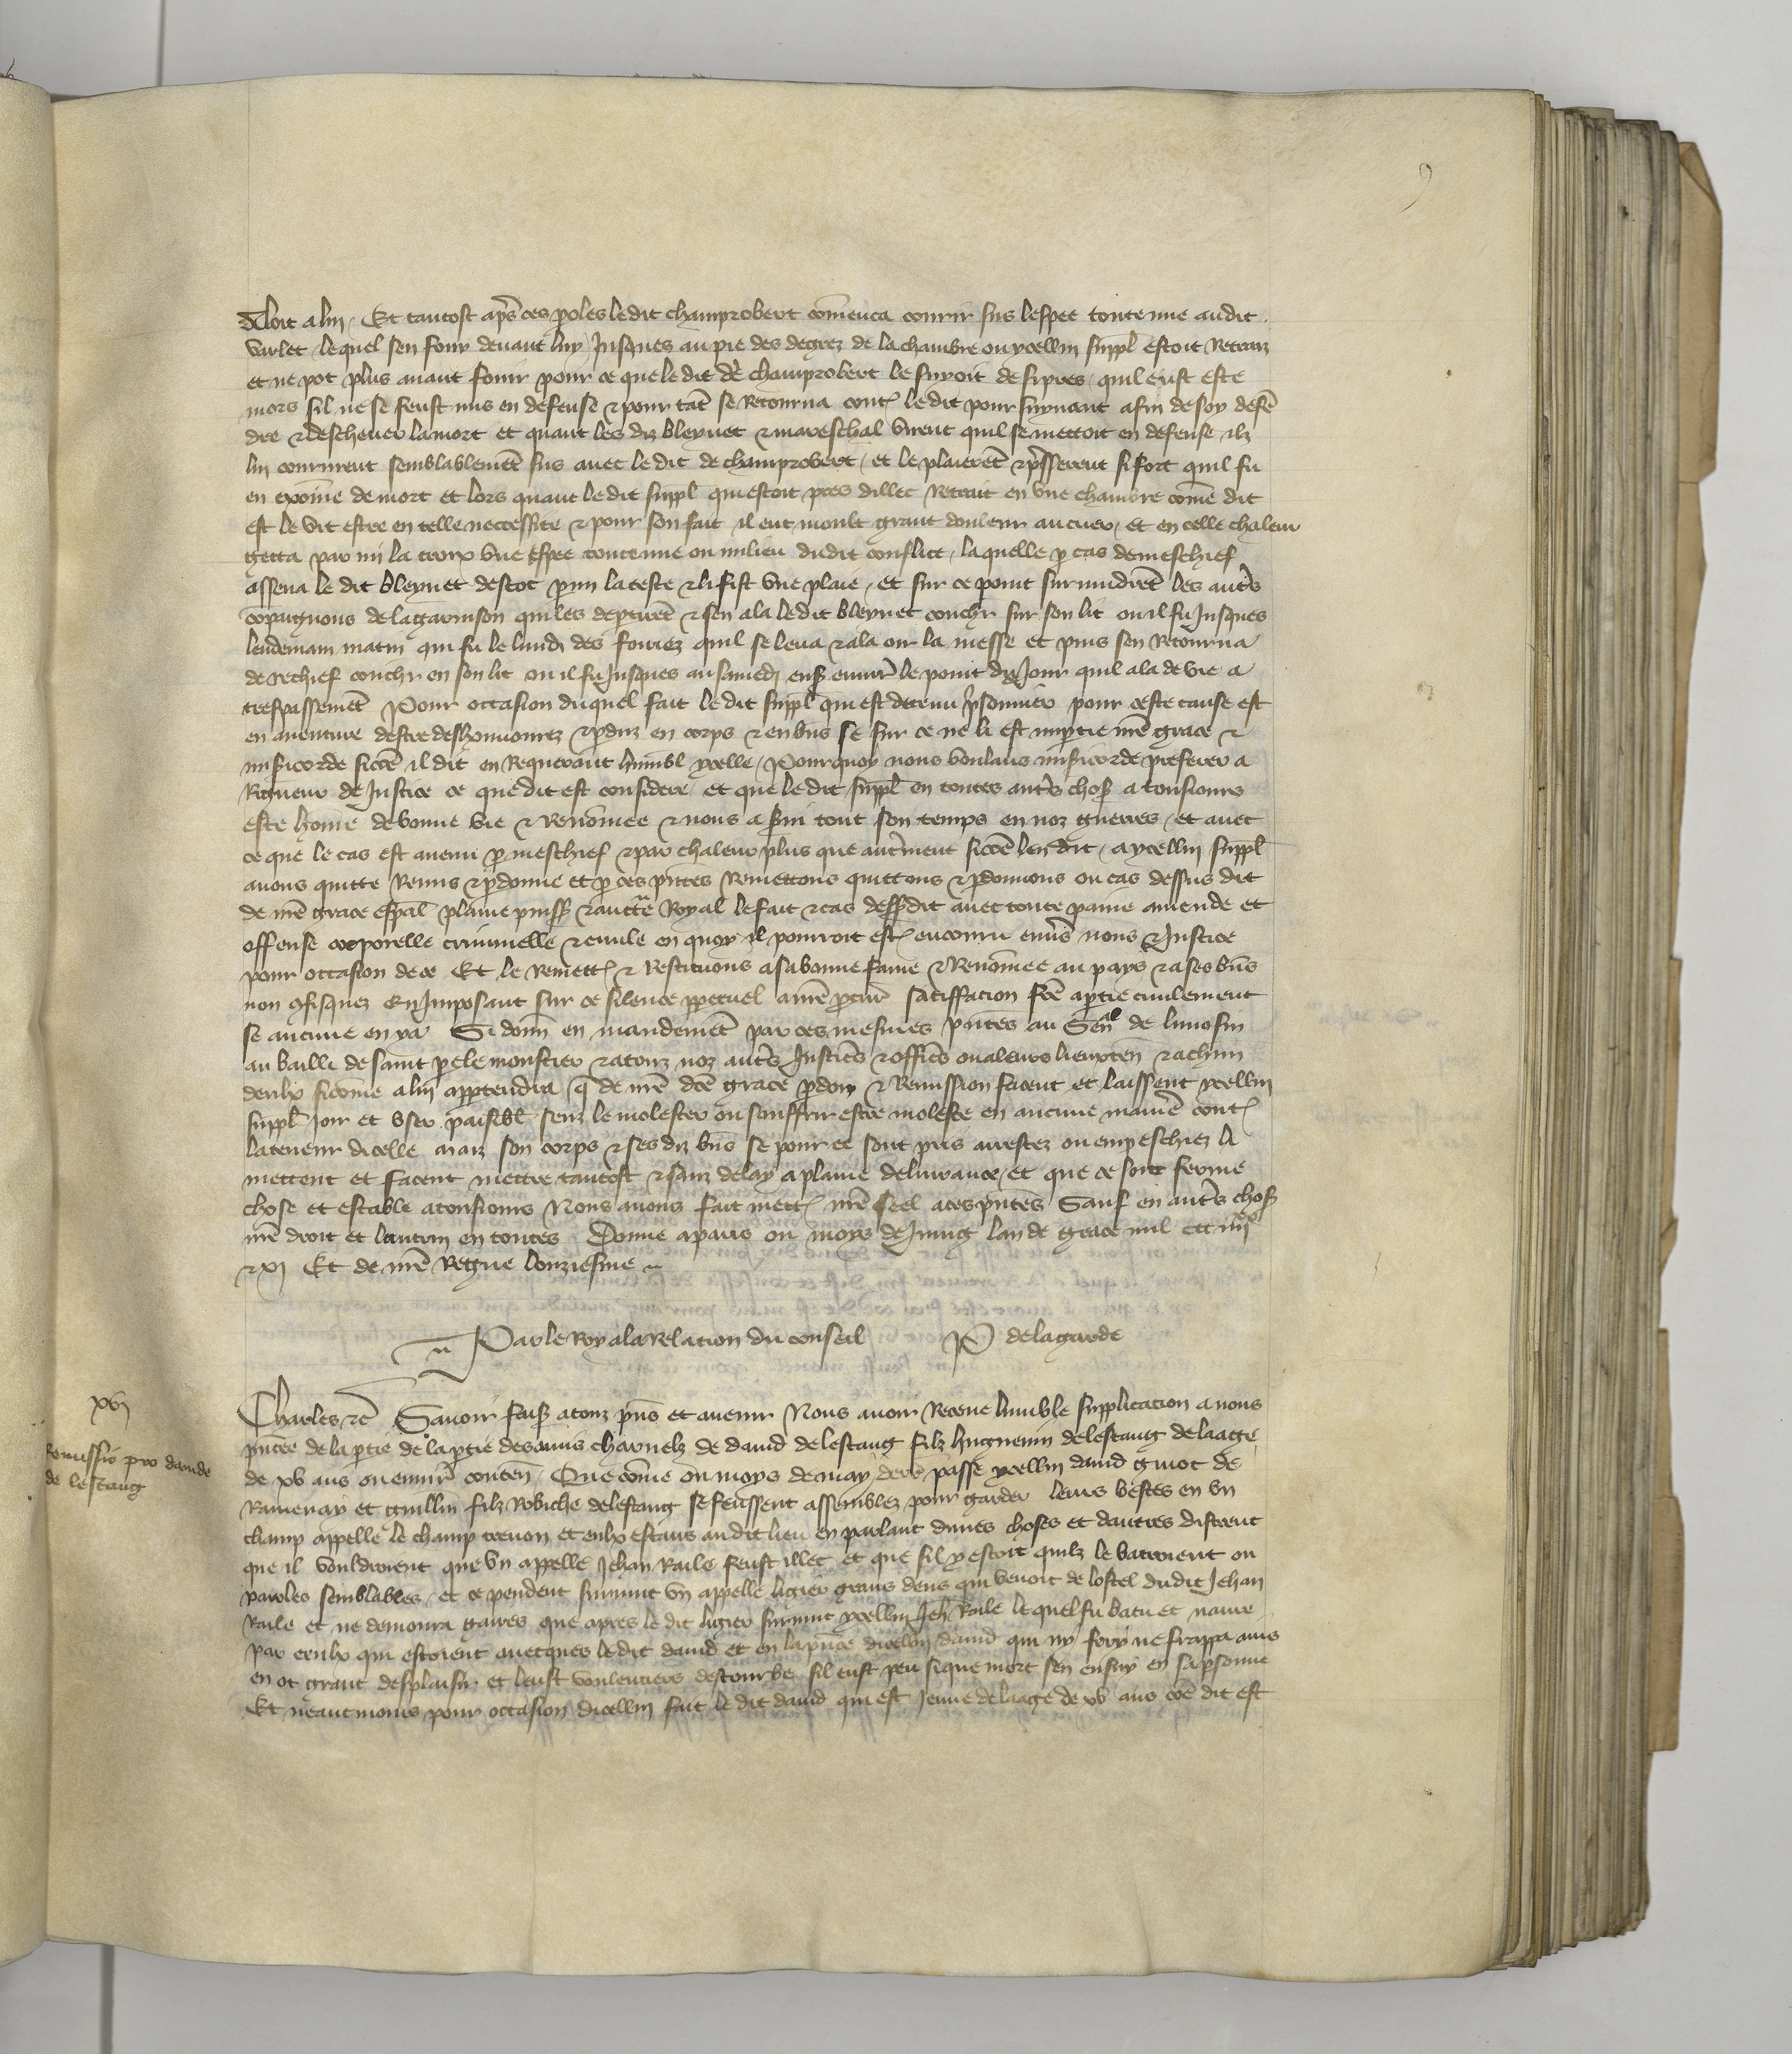 9
doloit a luy. Et tantost apres ces paroles le dit champrobert comenca courir sus lespee toute nue audit
varlet lequel sen fouy devant luy jusques au pie des degrez de la chambre ou ycellui suppl estoit Retraiz
et ne pot plus avant fouir pour ce que le dit de champrobert le suyvoit de si pres quil eust este
mors sil ne se feust mis en defense & pour tant se Retourna contre ledit poursuyvant afin de soy defen
dre & deschever la mort et quant les diz bleynet & mareschal virent quil se mettoit en defense ilz
lui coururent semblablement sus avec le dit de champrobert, et le plaierent & presserent si fort quil fu
en exoime de mort et lors quant le dit suppl qui estoit pres dillec Retrait en une chambre come dit
est le vit estre en telle neccessite & pour son fait il eut moult grant douleur au cuer, et en celle chaleur
getta par mi la croix une espee toute nue ou milieu dudit conflict, laquelle par cas de meschief
assena le dit bleynet destoc parmi la teste & li fist une plaie, et sur ce point survindrent les autres
compaignons de la garnison qui les departirent & sen ala le dit bleynet couchr sur son lit ou il fu jusques
lendemain matin qui fu le lundi des foiriez quil se leva & ala oir la messe et puis sen Retourna
de rechief couchr en son lit ou il fu jusques au samedi ens environ le point du jour quil ala de vie a
trespassement Pour occasion duquel fait le dit suppl qui est detenu prisonnier pour ceste cause est
en aventure destre deshonnourez & perduz en corps & en biens se sur ce ne li est impartie nre grace &
misericorde sicome il dit en Requerant humbl ycelle, Pourquoy nous voulans misericorde preferer a
Rigueur de justice ce que dit est considere, et que le dit suppl en toutes autres choses a tousiours
este home de bonne vie & Renomee & nous a servi tout son temps en noz guerres, et avec
ce que le cas est avenu par meschief & par chaleur plus que autrement sicome len dit, a ycellui suppl
avons quitte Remis & pardonne et par ces presentes Remettons quittons & pardonnons ou cas dessus dit
de nre grace especial plaine puissance & auctorite Royal le fait & cas dessusdit avec toute paine amende et
offense corporelle criminelle & civile en quoy il pourroit estre encouru envers nous & justice
pour occasion de ce Et le Remettons & Restituons a sa bonne fame & Renomee au pays & a ses biens
non confisquez En imposant sur ce silence perpetuel a nre procureur satiffacion fce a partie civilement
se aucune en y a Si donnons en mandement par ces mesmes presentes au Senal de limosin
au bailli de saint pere le monstier & a touz noz autres justiciers & officiers ou a leurs lieuxten & a chun
deulx sicome a lui appartendra que de nre dce grace pardon & Remission facent et laissent ycellui
suppl joir et user paisibl senz le molester ou souffrir estre moleste en aucune maniere contre
la teneur dicelle maiz son corps & ses diz biens se pour ce sont pris arrestez ou empeschiez li
mettent et facent mettre tantost & sanz delay a plaine delivrance, et que ce soit ferme
chose et estable a tousiours Nous avons fait mettre nre seel a ces presentes Sauf en autres choses
nre droit et lautrui en toutes Donne a paris ou moys de juing lan de grace mil ccc iiiixx
& xi Et de nre Regne lonziesme
Par le Roy a la Relacion du conseil P de la garde
xvj
Remissio pro davide
de lestang
Charles &c Savoir faisons a touz presens et avenir Nous avoir Receue humble supplicacion a nous
presentee de la partie de la partie des amis charnelz de david de lestang filz huguenin de lestang de laage
de xv ans ou environ conten, Que come ou moys de may derr passe ycellui david guiot de
Rimenay et guillin filz Robiche de lestang se feussent assemblez pour garder leurs bestes en un
champ appelle le champ trevon et eulx estans audit lieu en parlant dunes choses et dautres distrent
que il vouldroient que un appelle Jehan Raile feust illec et que sil y estoit quilz le batroient ou
paroles semblables, et ce pendent survint un appelle ligier grans dens qui venoit de lostel dudit Jehan
Raile et ne demoura gaires que apres le dit ligier survint ycellui Jeh Raile lequel fu batu et navre
par ceulx qui estoient avecques le dit david et en la presence dicellui david qui ny fery ne frappa mais
en ot grant desplaisir et leust voulentiers destourbe sil eust peu si que mort sen ensuy en sa personne
Et neantmoins pour occasion dicellui fait le dit david qui est jeune de laage de xv ans come dit est